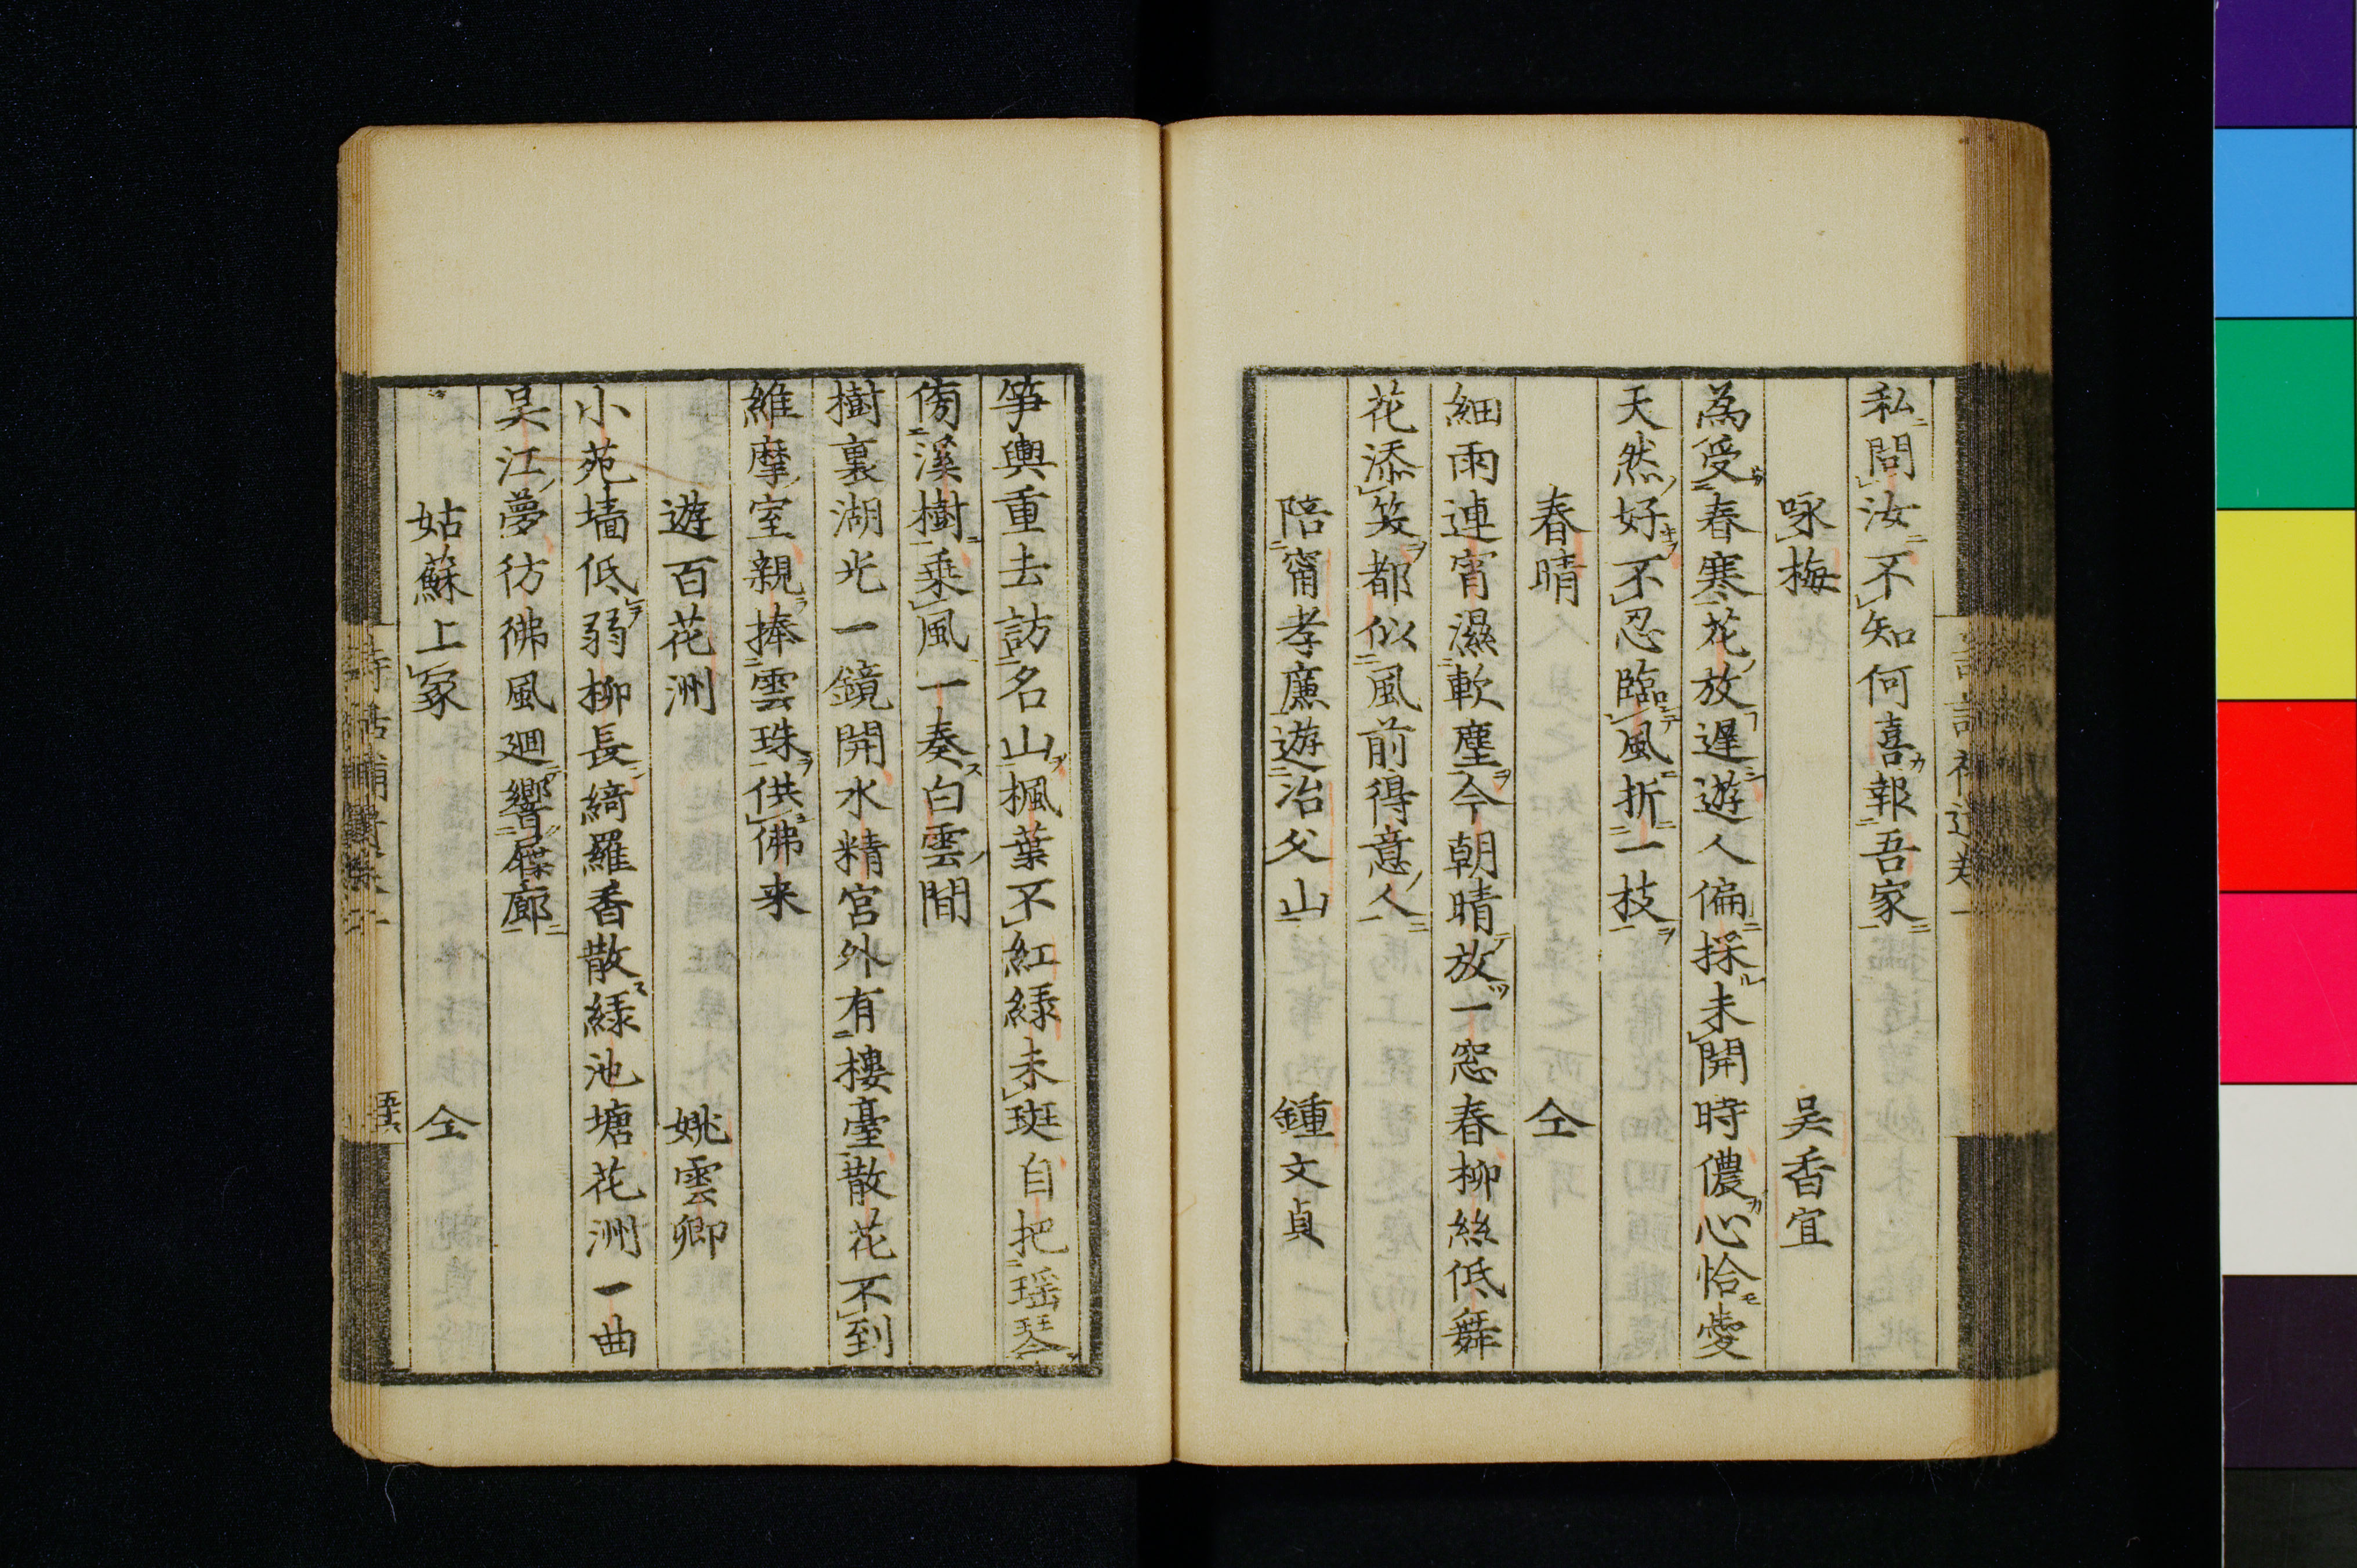 私問汝不知何喜報吾家
咏梅 吴香宜
為受春寒花放遲遊人偏採未開時儂心恰愛
天然好不忍臨風折一枝
春晴 仝
細雨連宵濕軟塵今朝晴放一窓春柳絲低舞
花添笑都似風前得意人
陪甯孝廉遊治父山 鍾文貞
筍輿重去訪名山楓葉不紅緑未斑自把瑶琴
傍溪樹乗風一奏白雲間
樹裏湖光一鏡開水精宮外有樓臺散花不到
維摩室親捧雲珠供佛来
遊百花洲 姚雲卿
小苑墻低弱柳長綺羅香散緑池塘花洲一曲
吴江夢彷彿風廻響屧廊
姑蘇上冢 仝